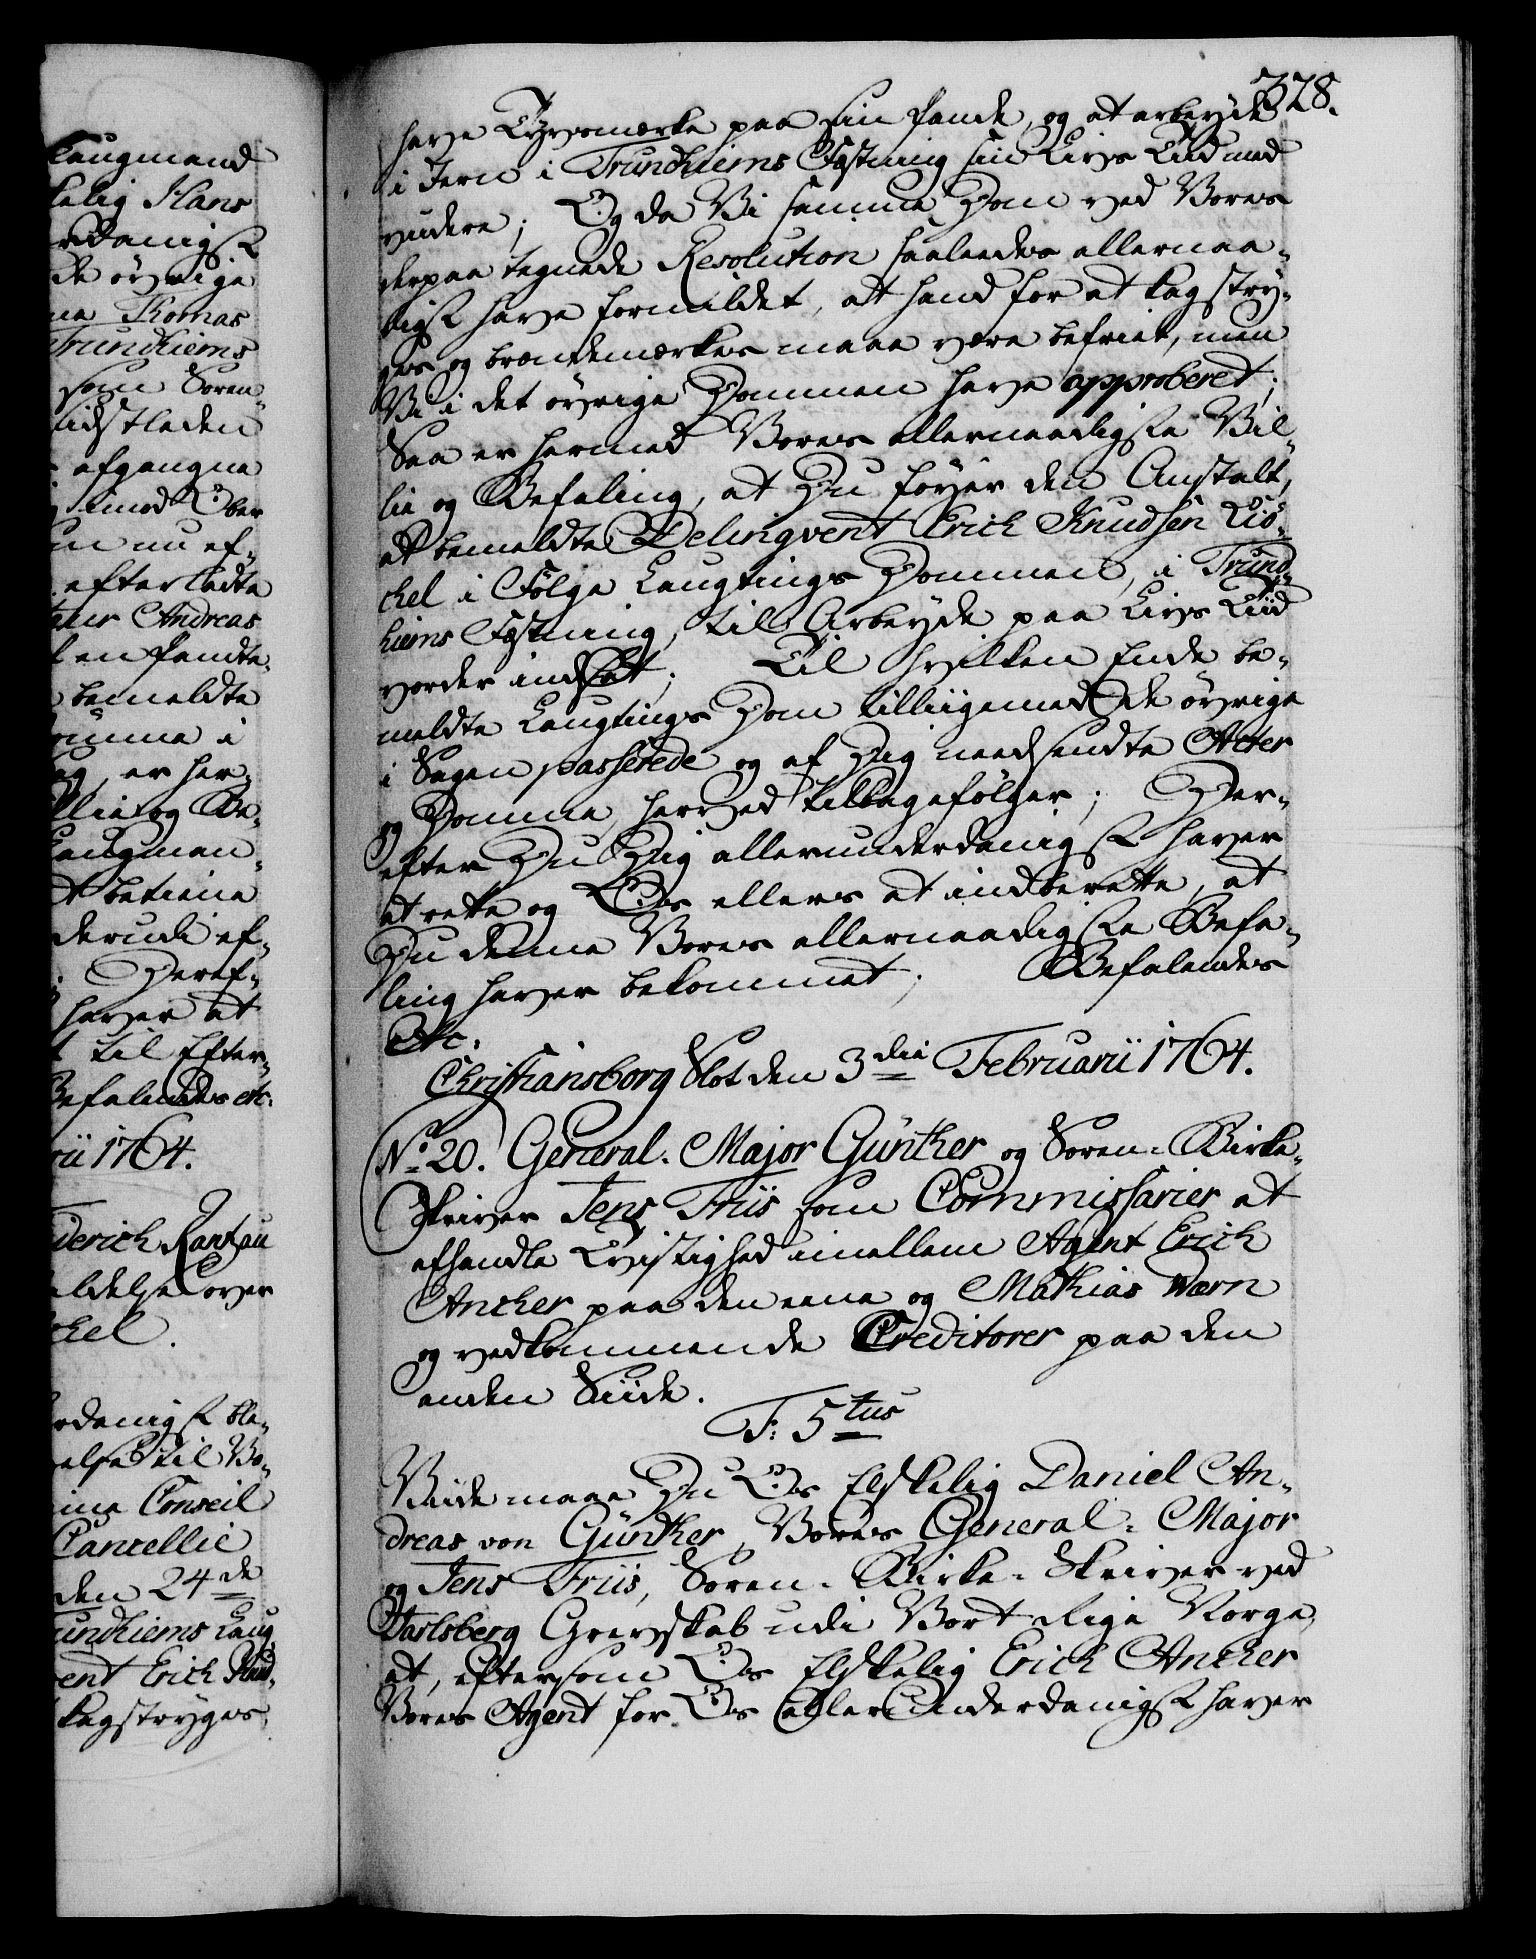 328.
have Tyvsmærke paa sin Pande, og at arbeyde
i Jern i Trundhiems Fæstning sin Livs Tiid med
videre; Og da Vi samme Dom ved Vores
derpaa tegnede Resolution saaledes allernaa-
digst have formildet, at hand for at kagstry-
ges og brændemærkes maae være befriet, men
Vi i det øvrige Dommen have approberet;
Saa er hermed Vores allernaadigste Vil-
lie og Befaling, at Du føyer den Anstalt,
at bemeldte Delinqvent Erich Knudsen Lis-
chel i Følge Laugtings Dommen, i Trund-
hiems Fæstning, til Arbeyde paa Livs Tiid
vorder indsat; Til hvilken Ende be-
meldte Laugtings Dom tilligemed de øvrige
i Sagen passerede og af Dig needsendte Acter
og Domme, herved tilbagefølger; Der-
efter Du Dig allerunderdanigst haver
at rette og Os ellers at indberette, at
Du denne Vores allernaadigste Befa-
ling haver bekommet; Befalendes
etc.
Christiansborg Slot den 3die Februarii 1764.
No. 20. General-Major Günther og Soren-Birke-
Skriver Jens Friis som Commissarier at
afhandle Tvistighed imellem Agent Erich
Ancher paa den eene og Mathias Wærn
og vedkommende Creditorer paa den
anden Siide.
F: 5tus
Viide maae Du Os Elskelig Daniel An-
dreas von Günther, Vores General-Major
og Jens Friis, Soren-Birke-Skriver ved
Jarlsberg Grevskab udi Vort Rige Norge,
at, eftersom Os Elskelig Erich Ancher
Vores Agent for Os allerunderdanigst haver